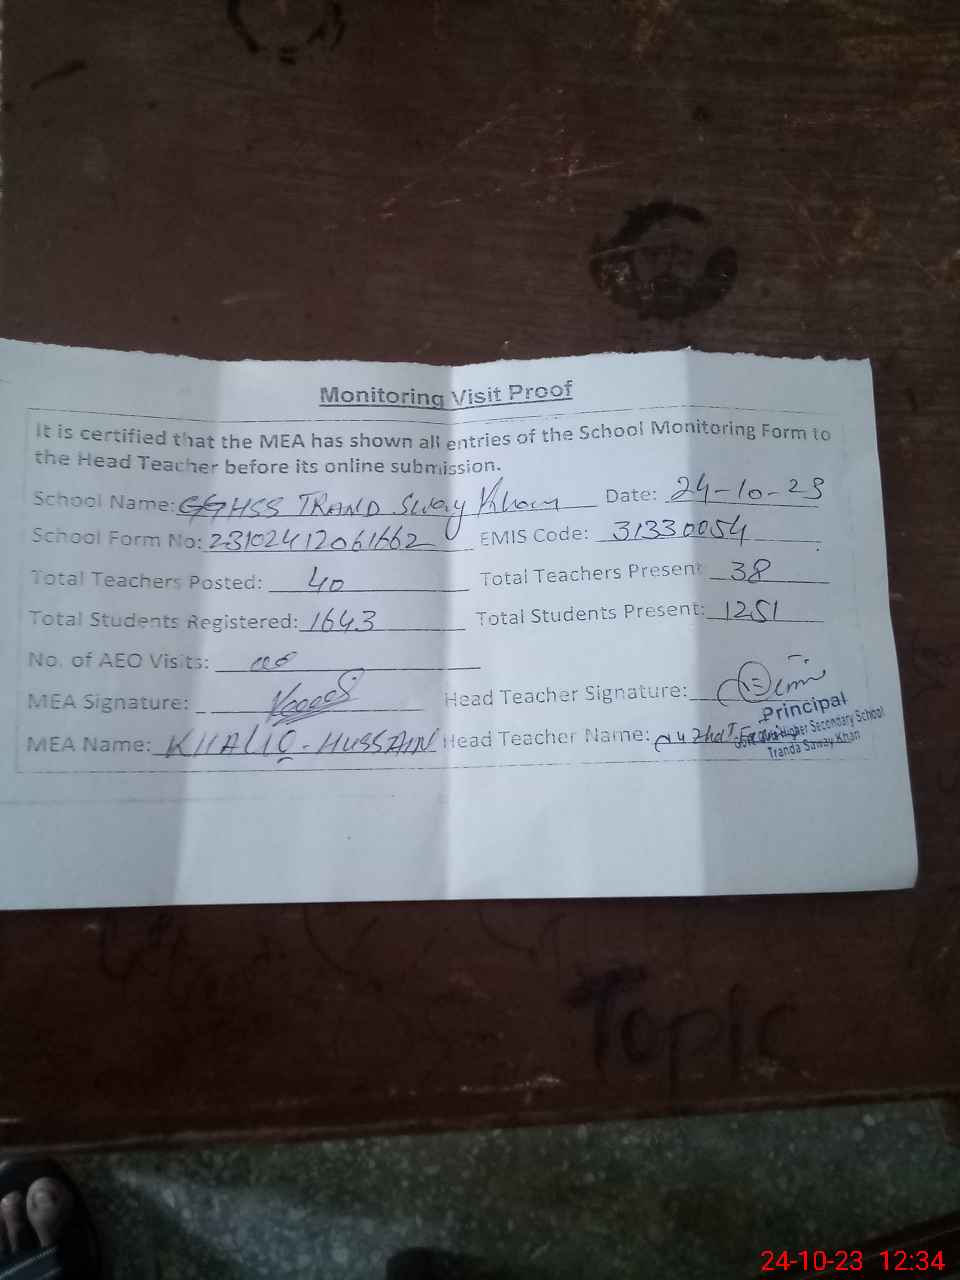 Monitoring Visit Proof
It is certified that the MEA has shown all entries of the School Monitoring Form to
the Head Teacher before its online submission.
School Name: GGHSS TRAND Sway Khan Date: 24-10-23
School Form No: 23102412061662 EMIS Code: 31330054
Total Teachers Posted: 40 Total Teachers Present 38
Total Students Registered: 1643 Total Students Present: 1251
No. of AEO Visits:
MEA Signature: Head Teacher Signature:
Principal
MEA Name: KHALIQ-HUSSAIN Head Teacher Name:
Higher Secondary School
Tranda Saway Khan
Topic
24-10-23 12:34